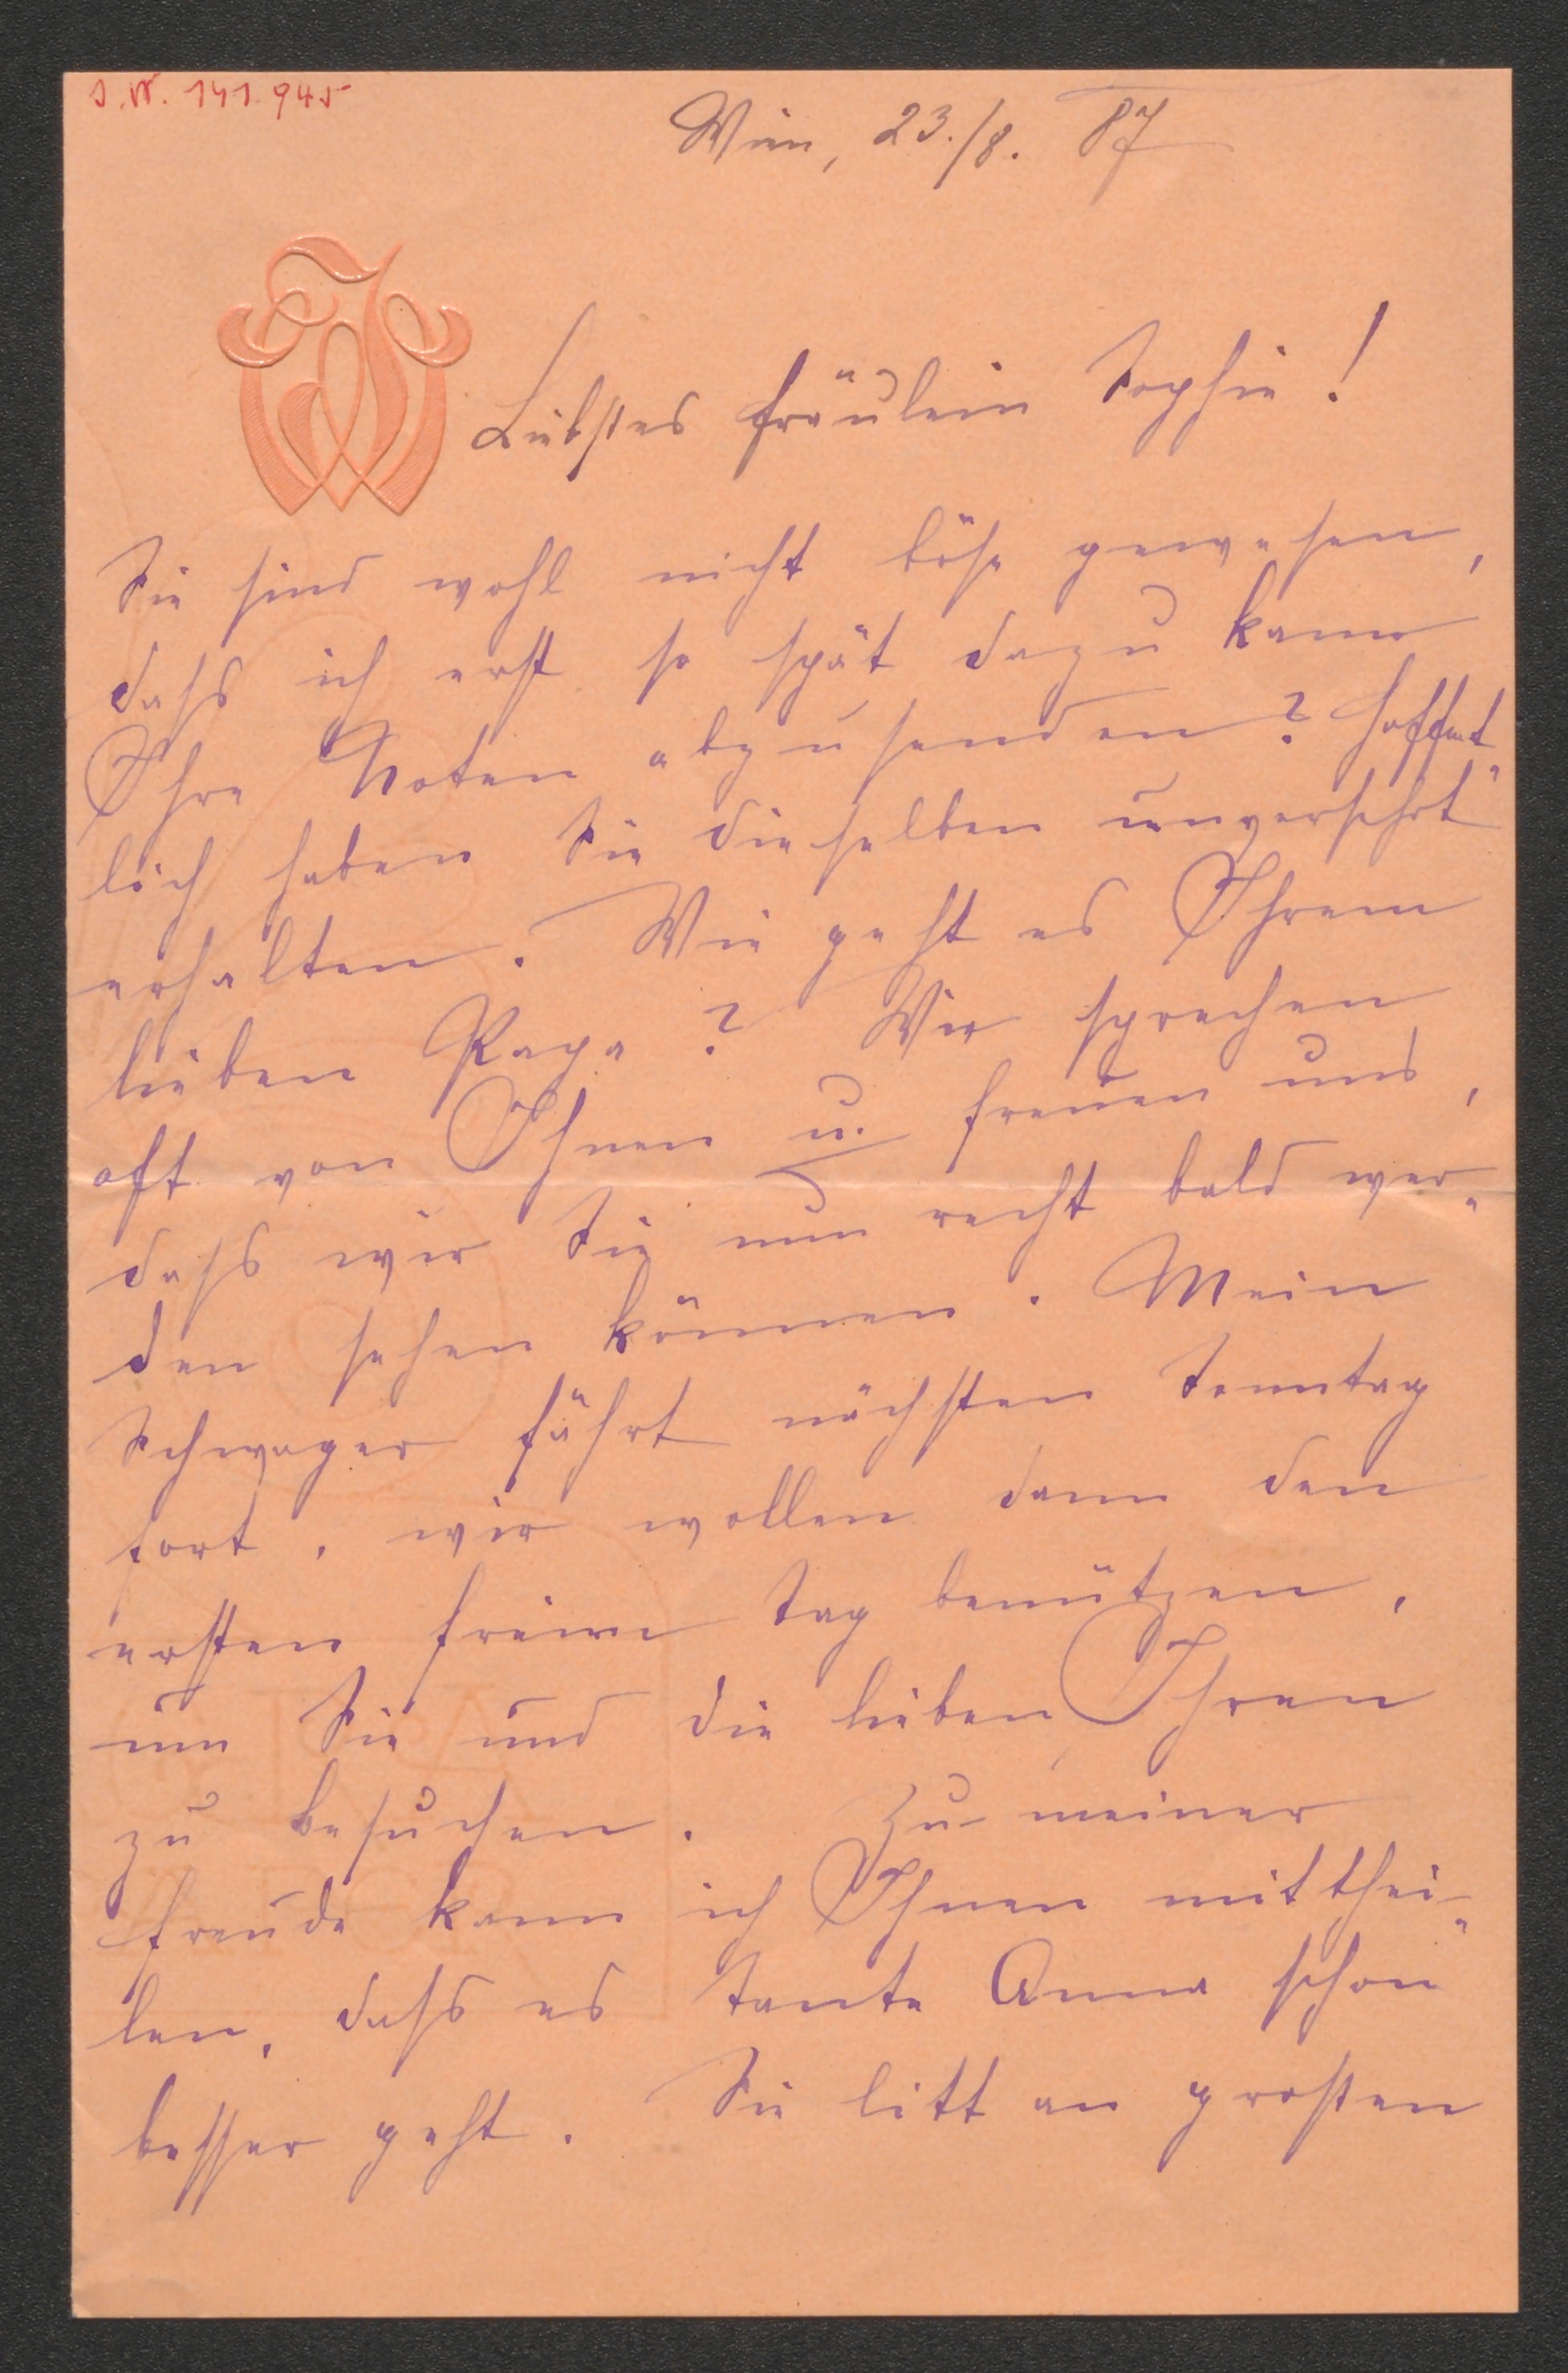 I.N. 141.945
Wien, 23./8. 87
Liebstes Fräulein Sophie!
Sie sind wohl nicht böse gewesen,
dass ich erst so spät dazu kam
Ihre Noten abzusenden? Hoffent-
lich haben Sie dieselben unversehrt
erhalten. Wie geht es Ihrem
lieben Papa? Wir sprechen
oft von Ihnen u. freuen uns,
dass wir Sie nun recht bald wer-
den sehen können. Mein
Schwager fährt nächsten Sonntag
fort, wir wollen dann den
ersten freien Tag benützen,
um Sie und die lieben Ihren
zu besuchen. Zu meiner
Freude kann ich Ihnen mitthei-
len, dass es Tante Anna schon
besser geht. Sie litt an großen